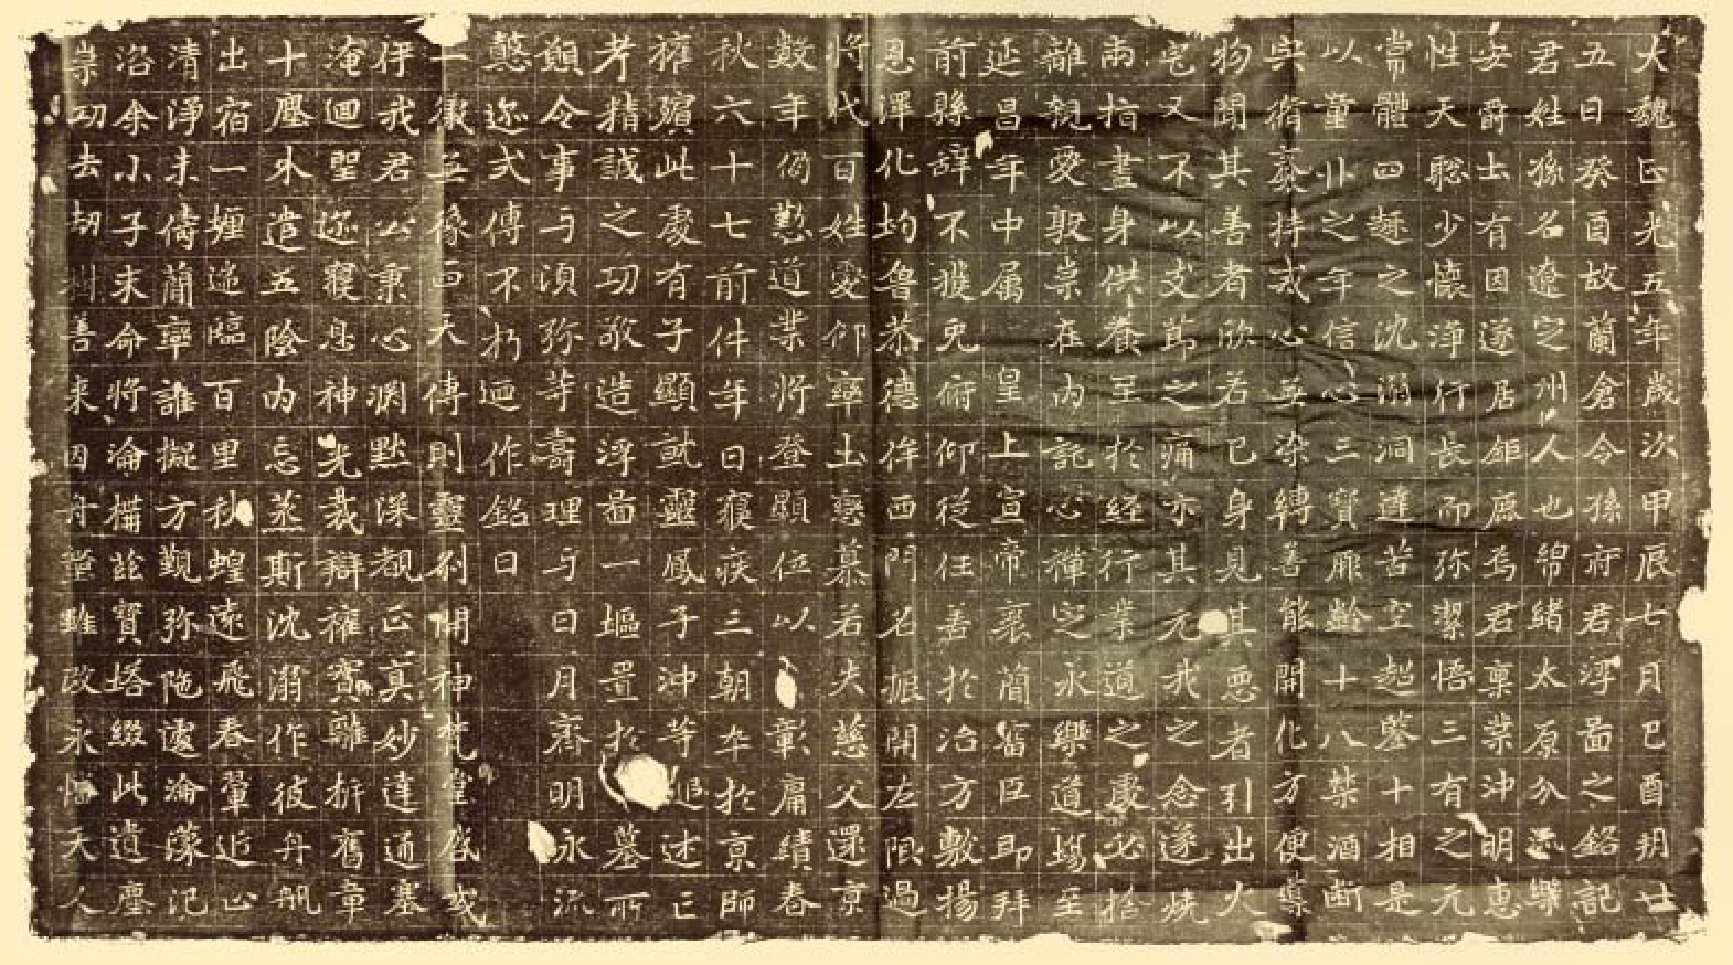 大魏正光五年歲次甲辰七月己酉朔廿
五日癸酉故蘭倉令孫府君浮啚之銘記
君姓孫名遼定州人也綿緒太原分流樂
安爵土有因遂居鉅鹿焉君稟業沖明惠
性天聡少懷淨行長而弥潔悟三有之无
常體四趣之沈溺洞達苦空超鑒十相是
以童丱之年信心三寶厥齡十八禁酒斷
宍脩齋持戒心無染縛善能開化方便導
物聞其善者欣若己身見其惡者引出火
宅又不以支節之痛亦其无我之念遂燒
兩指盡身供養至於経行業道之處必捨
離親愛聚祟在内託心禪定永樂道場至
延昌年中属皇上宣帝褒簡舊臣即拜
前縣辞不獲免俯仰從任善於治方敷揚
恩澤化均魯恭德侔西門名振開左限過
將代百姓愛仰率土戀慕若失慈父還京
數年倘懃道業將登顯位以彰庸績春
秋六十七前件年日寢疾三朝卒於京師
權殯此處有子顯就靈鳳子沖等追述亡
考精誠之功敬造浮啚一塸置於墓所
願令事与須弥等壽理与日月齊明永流
懿迹式傳不朽迺作銘曰
一徹無像西天傳則靈列開神梵堂啟或
伊我君公秉心渊黙深覩正真妙達通塞
淹迴聖迹寢息神光裁辯權實離析舊章
十塵外遣五陰内忘蒸斯沈溺作彼舟航
出宿一㕓遊臨百里秋蝗遠飛春翬近止
清淨未儔蘭率誰擬方覲弥陁遽淪濛汜
洛余小子夫命將淪構茲寶塔綴此遺塵
崇功去劫樹善来因舟壑雖改永悟天人